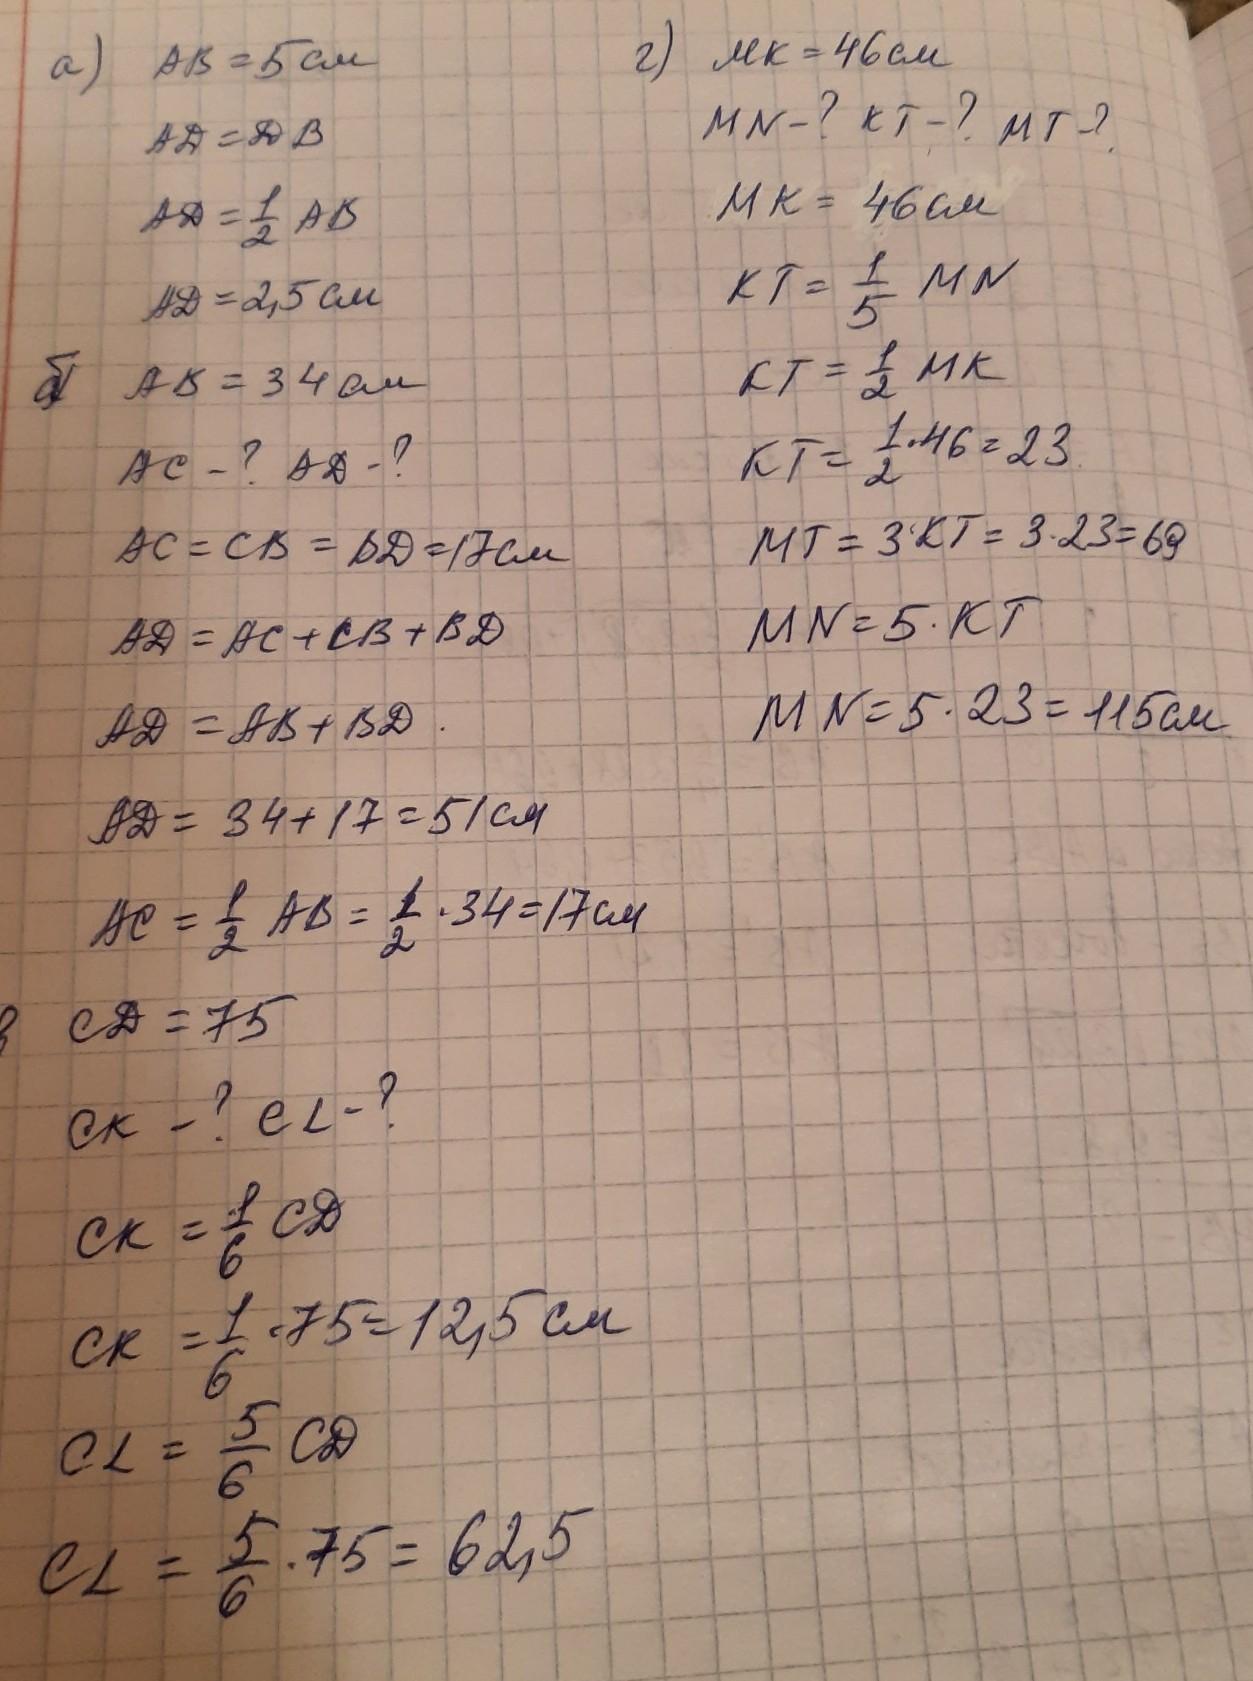 а) AB = 5 см
AD = DB
AD = 1/2 AB
AD = 2,5 см
б) AB = 34 см
AC - ? AD - ?
AC = CB = BD = 17 см
AD = AC + CB + BD
AD = AB + BD.
AD = 34 + 17 = 51 см
AC = 1/2 AB = 1/2 · 34 = 17 см
CD = 75
CK - ? CL - ?
CK = 1/6 CD
CK = 1/6 · 75 = 12,5 см
CL = 5/6 CD
CL = 5/6 · 75 = 62,5
г) MK = 46 см
MN - ? KT - ? MT - ?
MK = 46 см
KT = 1/5 MN
KT = 1/2 MK
KT = 1/2 · 46 = 23
MT = 3 · KT = 3 · 23 = 69
MN = 5 · KT
MN = 5 · 23 = 115 см